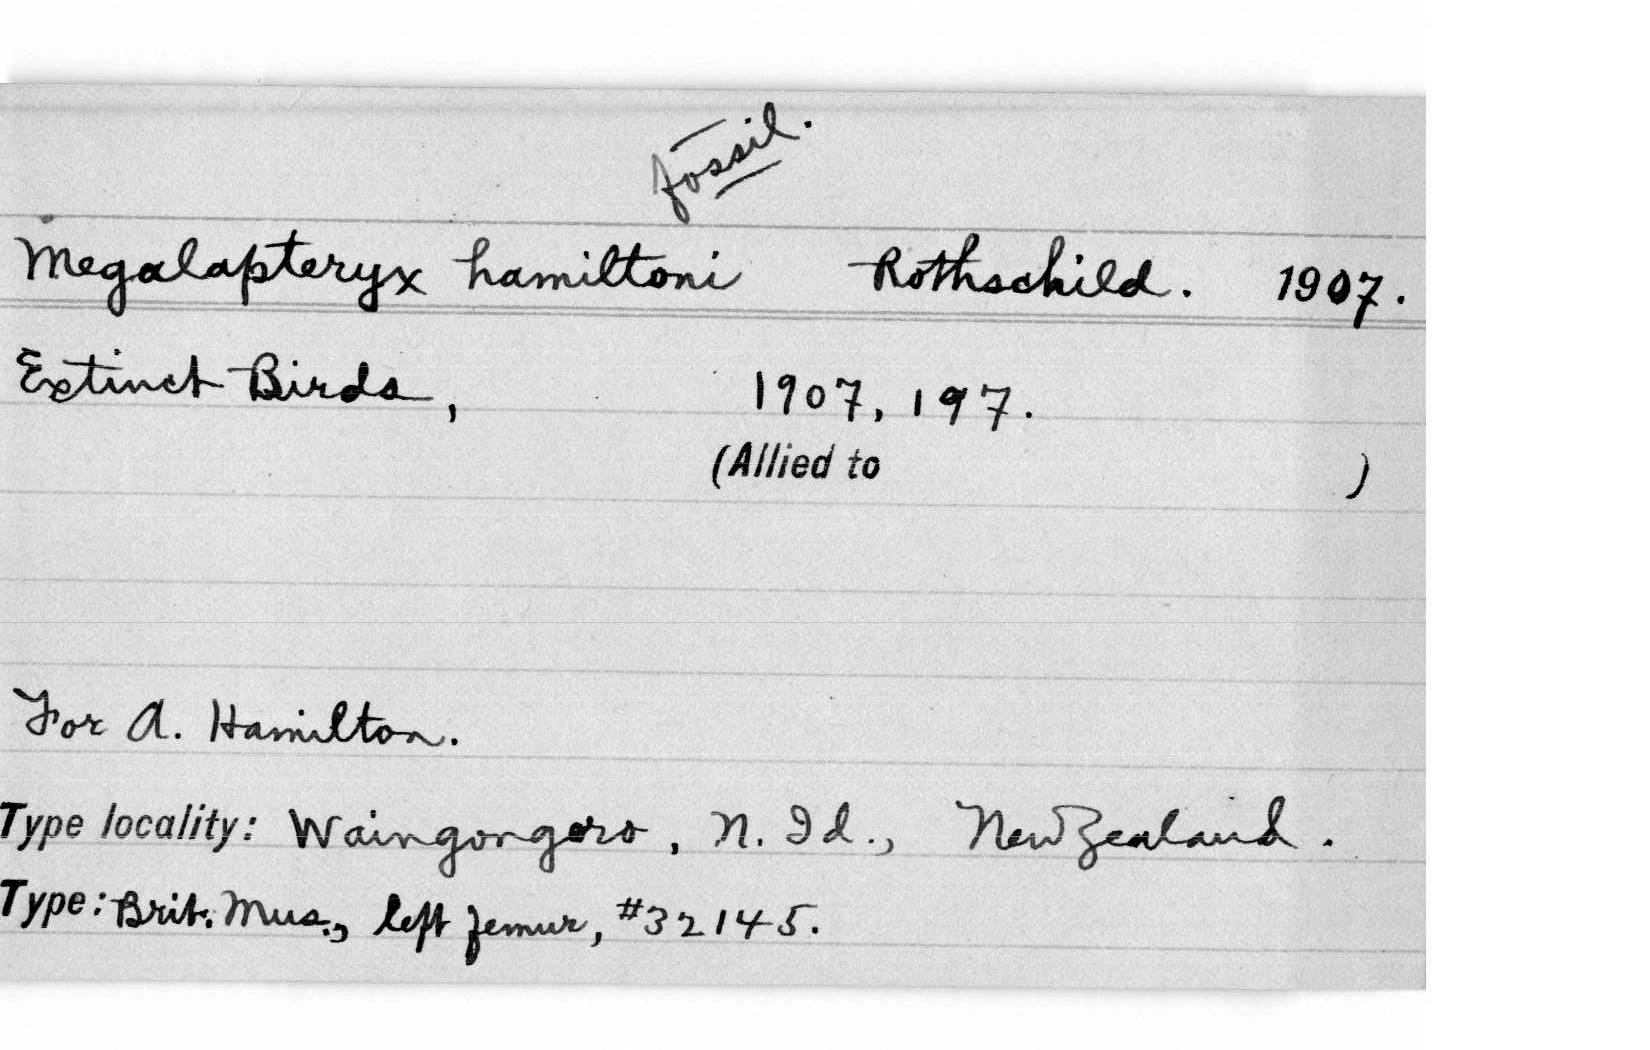 fossil.
Megalapteryx hamiltoni Rothschild. 1907.
Extinct Birds, 1907, 197.
(Allied to )
For A. Hamilton.
Type locality: Waingongoro, N. Id., New Zealand.
Type: Brit. Mus., left femur, #32145.